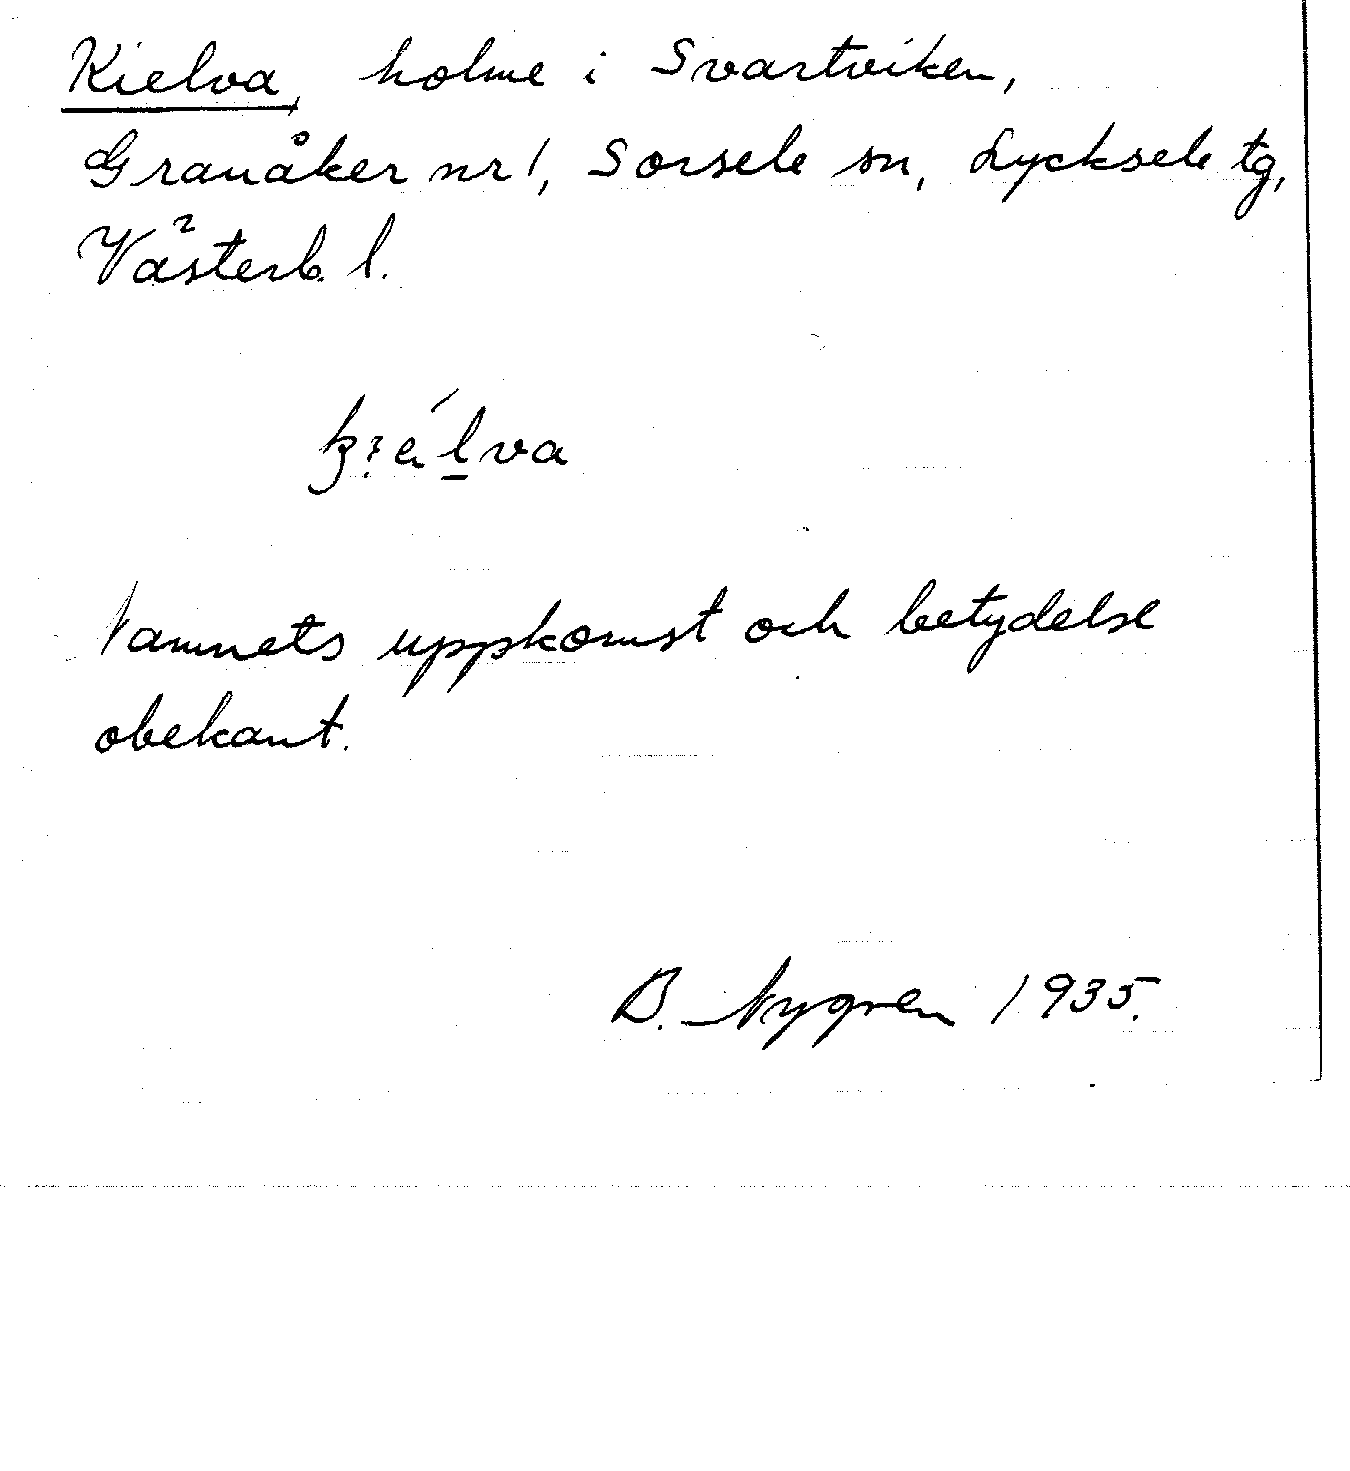 Kielva, holme i Svartviken,
Granåker nr 1, Sorsele sn, Lycksele tg,
Västerb. l.
Namnets uppkomst och betydelse
obekant.
B. Nygren 1935.